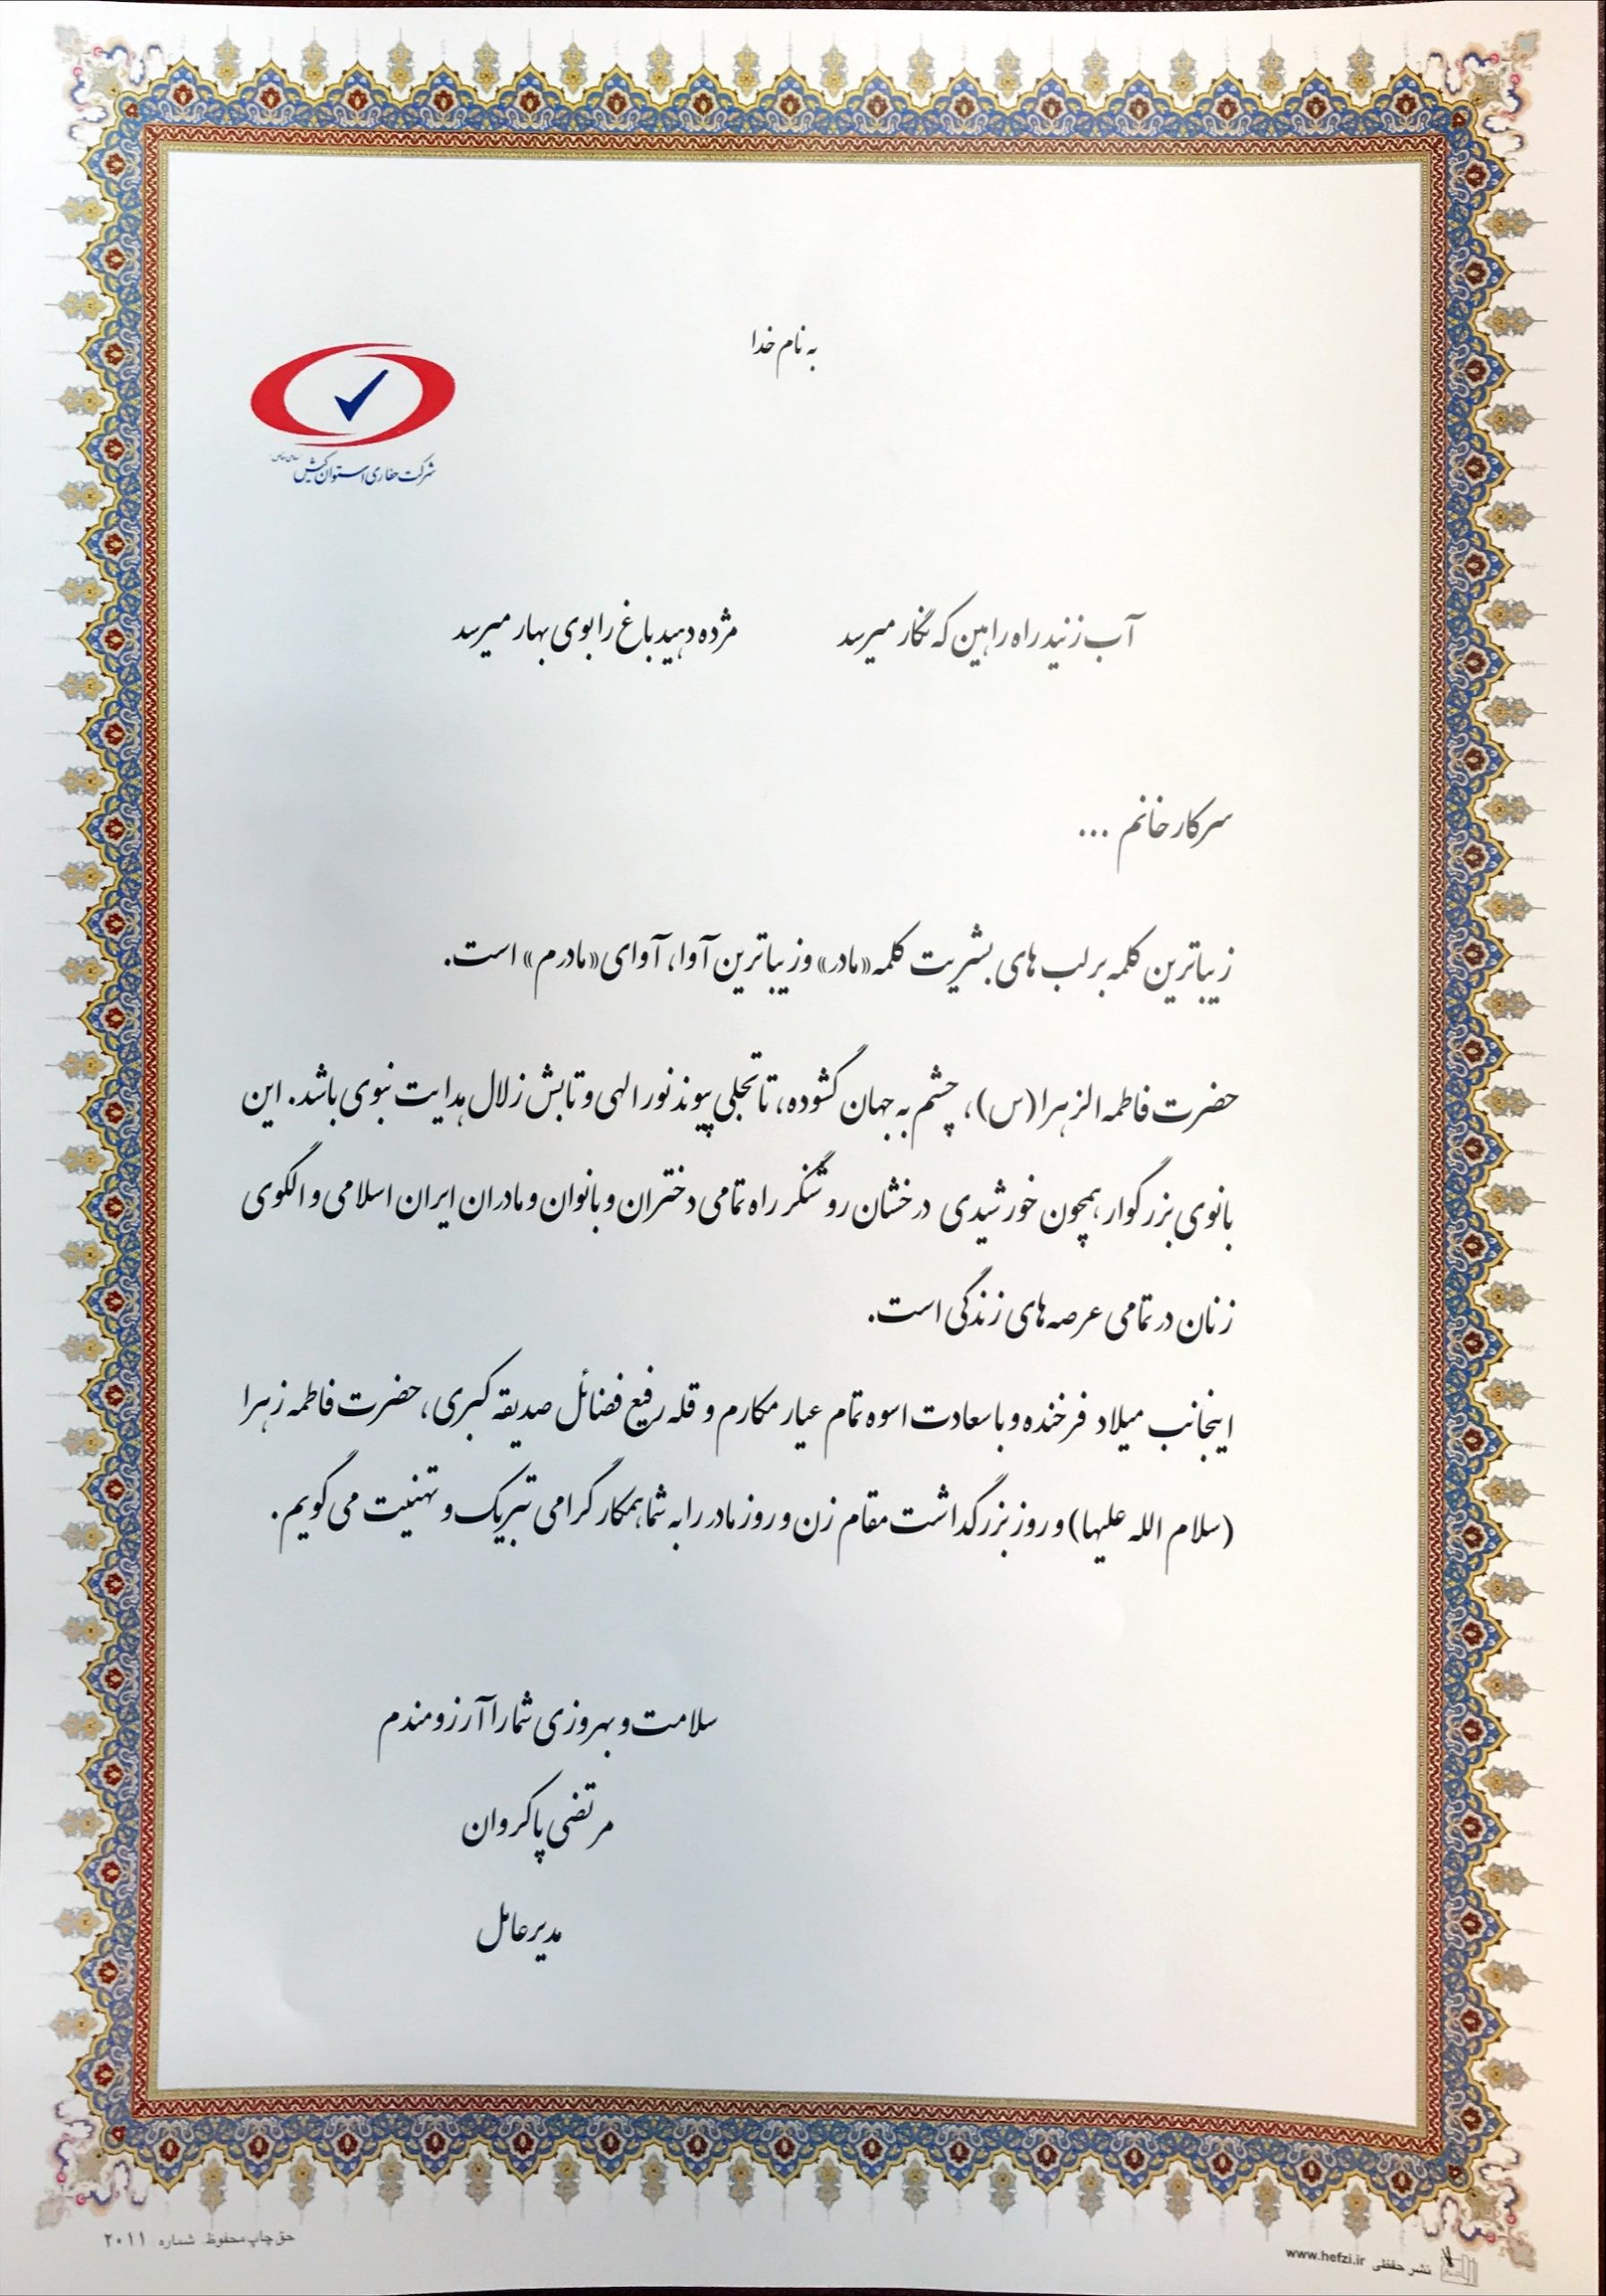 به نام خدا
شرکت حفاری استوان کیش
آب زنید راه را هین که نگار میرسد مژده دهید باغ را بوی بهار میرسد
سرکار خانم ...
زیباترین کلمه بر لب های بشریت کلمه «مادر» و زیباترین آوا، آوای «مادرم» است.
حضرت فاطمه الزهرا (س)، چشم به جهان گشوده، تا تجلی پیوند نور الهی و تابش زلال هدایت نبوی باشد. این
بانوی بزرگوار همچون خورشیدی درخشان روشنگر راه تمامی دختران و بانوان و مادران ایران اسلامی و الگوی
زنان در تمامی عرصه های زندگی است.
اینجانب میلاد فرخنده و با سعادت اسوه تمام عیار مکارم و قله رفیع فضائل صدیقه کبری، حضرت فاطمه زهرا
(سلام الله علیها) و روز بزرگداشت مقام زن و روز مادر را به شما همکار گرامی تبریک و تهنیت می گویم.
سلامت و بهروزی شما را آرزومندم
مرتضی پاکروان
مدیرعامل
نشر حفظی www.hefzi.ir
حق چاپ محفوظ شماره ۲۰۱۱